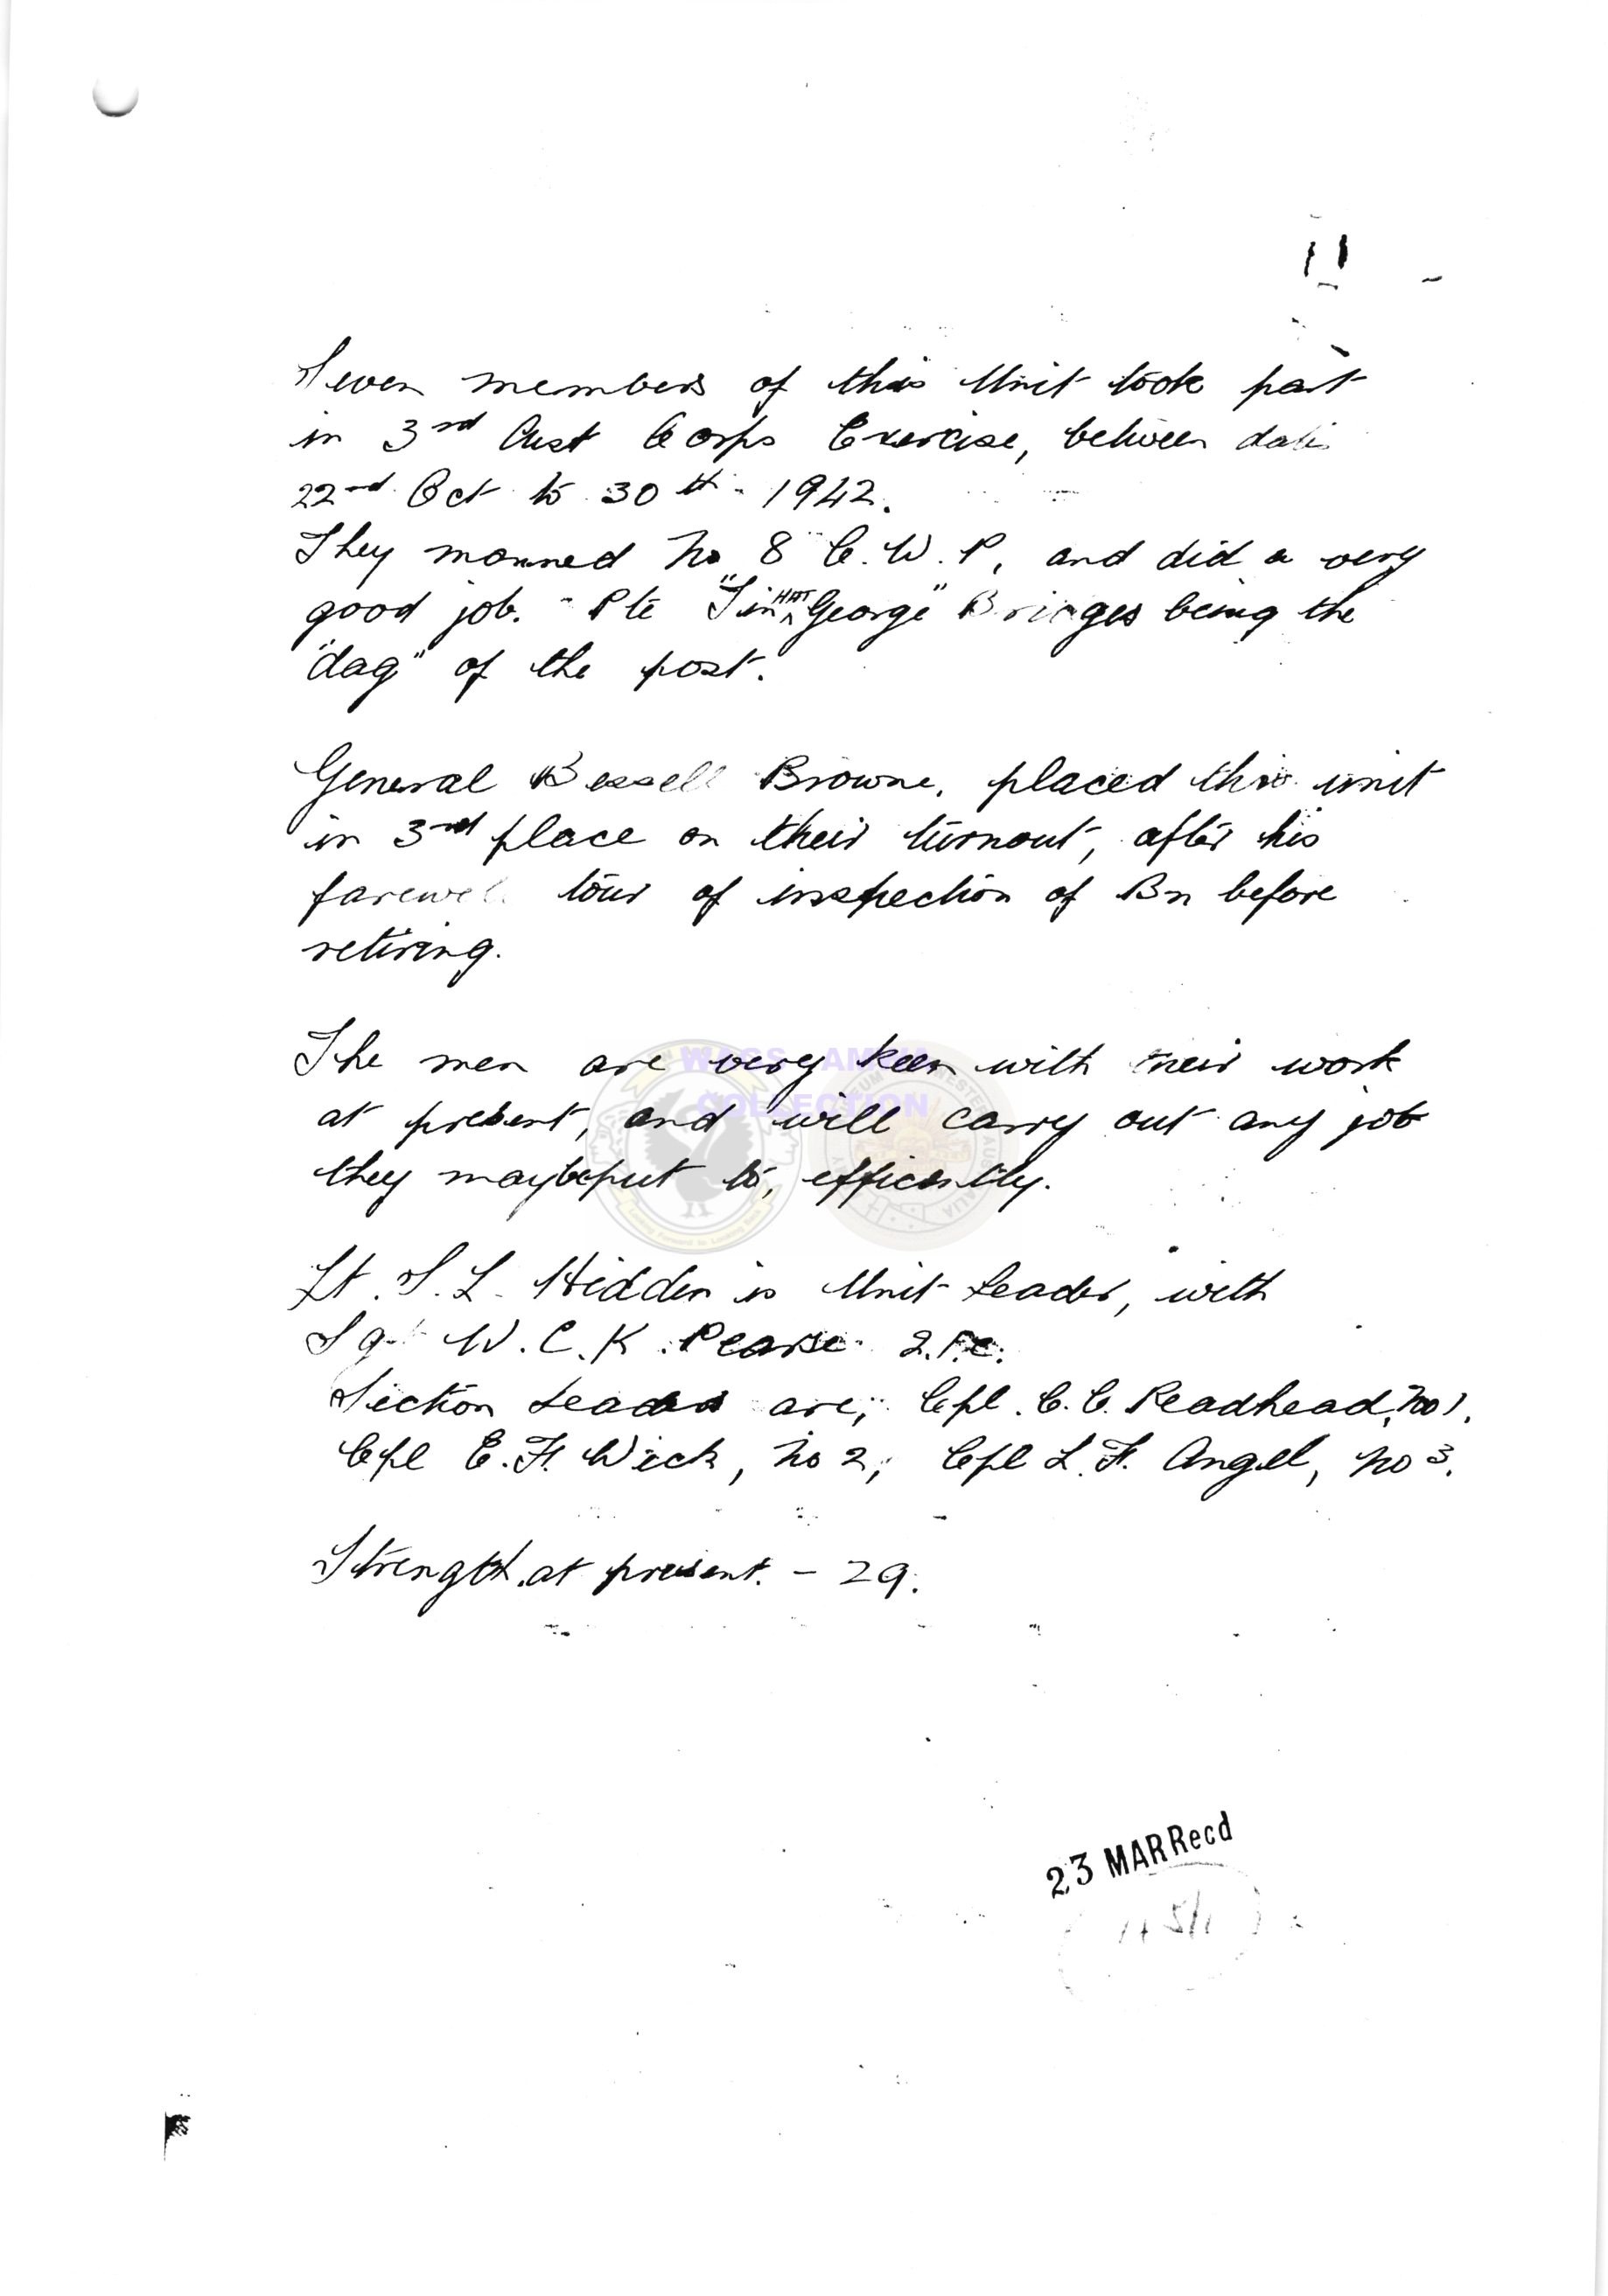 11
Seven members of this Unit took part
in 3rd Aust Corps Exercise, between date
22nd Oct to 30th - 1942.
They manned No 8 C.W.P, and did a very
good job. - Pte "Tin HAT George" Bridges being the
"dag" of the post.
General Bessell Browne, placed this unit
in 3rd place on their turnout, after his
farewell tour of inspection of Bn before
retiring.
The men are very keen with their work
at present, and will carry out any job
they maybeput to, efficently.
Lt. S. L. Hidden is Unit Leader, with
Sgt W. C. K. Pearse 2.I.C.
Section Leaders are; Cpl. C. C. Readhead, No 1.
Cpl E. H. Wick, No 2; Cpl L. F. Angel, No 3.
Strength at present. - 29.
WAGS AMHWA
COLLECTION
Looking Forward to Looking Back
23 MAR Recd